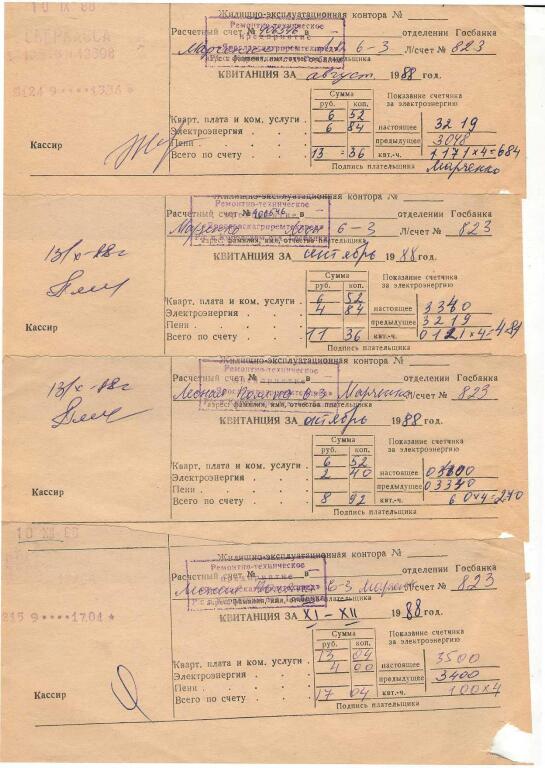 10 IX 88
Жилищно-эксплуатационная контора №
Ремонтно-техническое
предприятие
Расчетный счет № в отделении Госбанка
6-3 Л/счет № 823
адрес, фамилия, имя, отчество плательщика
КВИТАНЦИЯ ЗА август 1988 год.
Сумма
руб. коп.
Показание счетчика
за электроэнергию
Кварт. плата и ком. услуги 6 52
Электроэнергия 6 84 настоящее 3219
Пени предыдущее 3048
Всего по счету 13 = 36 квт.-ч 171х4=684
Кассир
Подпись плательщика
Марченко
Жилищно-эксплуатационная контора №
Ремонтно-техническое
Расчетный счет № в отделении Госбанка
6-3 Л/счет № 823
адрес, фамилия, имя, отчество плательщика
КВИТАНЦИЯ ЗА сентябрь 1988 год.
13/X-88г
Сумма
руб. коп.
Показание счетчика
за электроэнергию
Кварт. плата и ком. услуги 6 52
Электроэнергия 4 84 настоящее 3340
Пени предыдущее 3219
Всего по счету 11 36 квт.-ч 0121х4=484
Кассир
Подпись плательщика
Жилищно-эксплуатационная контора №
Ремонтно-техническое
Расчетный счет № в отделении Госбанка
Лесная Поляна 6-3 Марченко Л/счет № 823
адрес, фамилия, имя, отчество плательщика
КВИТАНЦИЯ ЗА октябрь 1988 год.
13/X-88г
Сумма
руб. коп.
Показание счетчика
за электроэнергию
Кварт. плата и ком. услуги 6 52
Электроэнергия 2 40 настоящее
Пени предыдущее 03340
Всего по счету 8 92 квт.-ч
Кассир
Подпись плательщика
10 XII 88
Жилищно-эксплуатационная контора №
Ремонтно-техническое
Расчетный счет № в отделении Госбанка
6-3 Марченко Л/счет № 823
адрес, фамилия, имя, отчество плательщика
КВИТАНЦИЯ ЗА XI-XII 1988 год.
Сумма
руб. коп.
Показание счетчика
за электроэнергию
Кварт. плата и ком. услуги 13 04
Электроэнергия 4 00 настоящее 3500
Пени предыдущее 3400
Всего по счету 17 04 квт.-ч 100х4
Кассир
Подпись плательщика